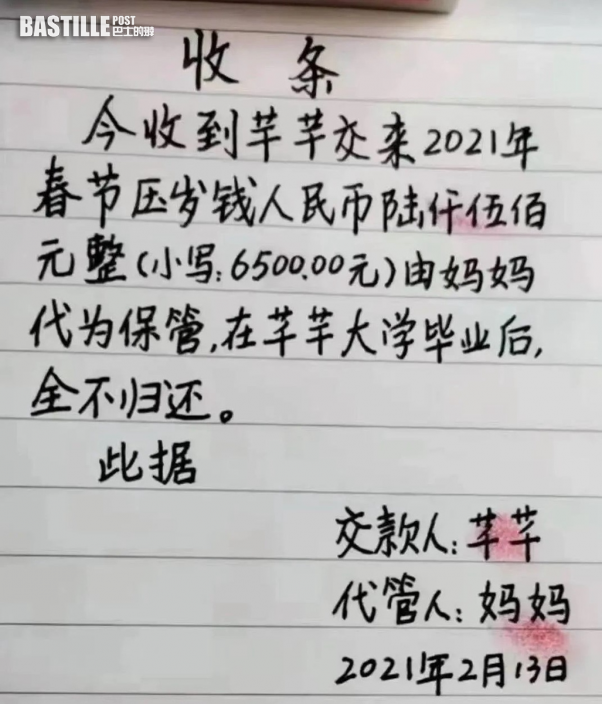 BASTILLE POST
巴士的報
收条
今收到芊芊交来2021年
春节压岁钱人民币陆仟伍佰
元整(小写:6500.00元)由妈妈
代为保管,在芊芊大学毕业后,
全不归还。
此据
交款人:芊芊
代管人:妈妈
2021年2月13日